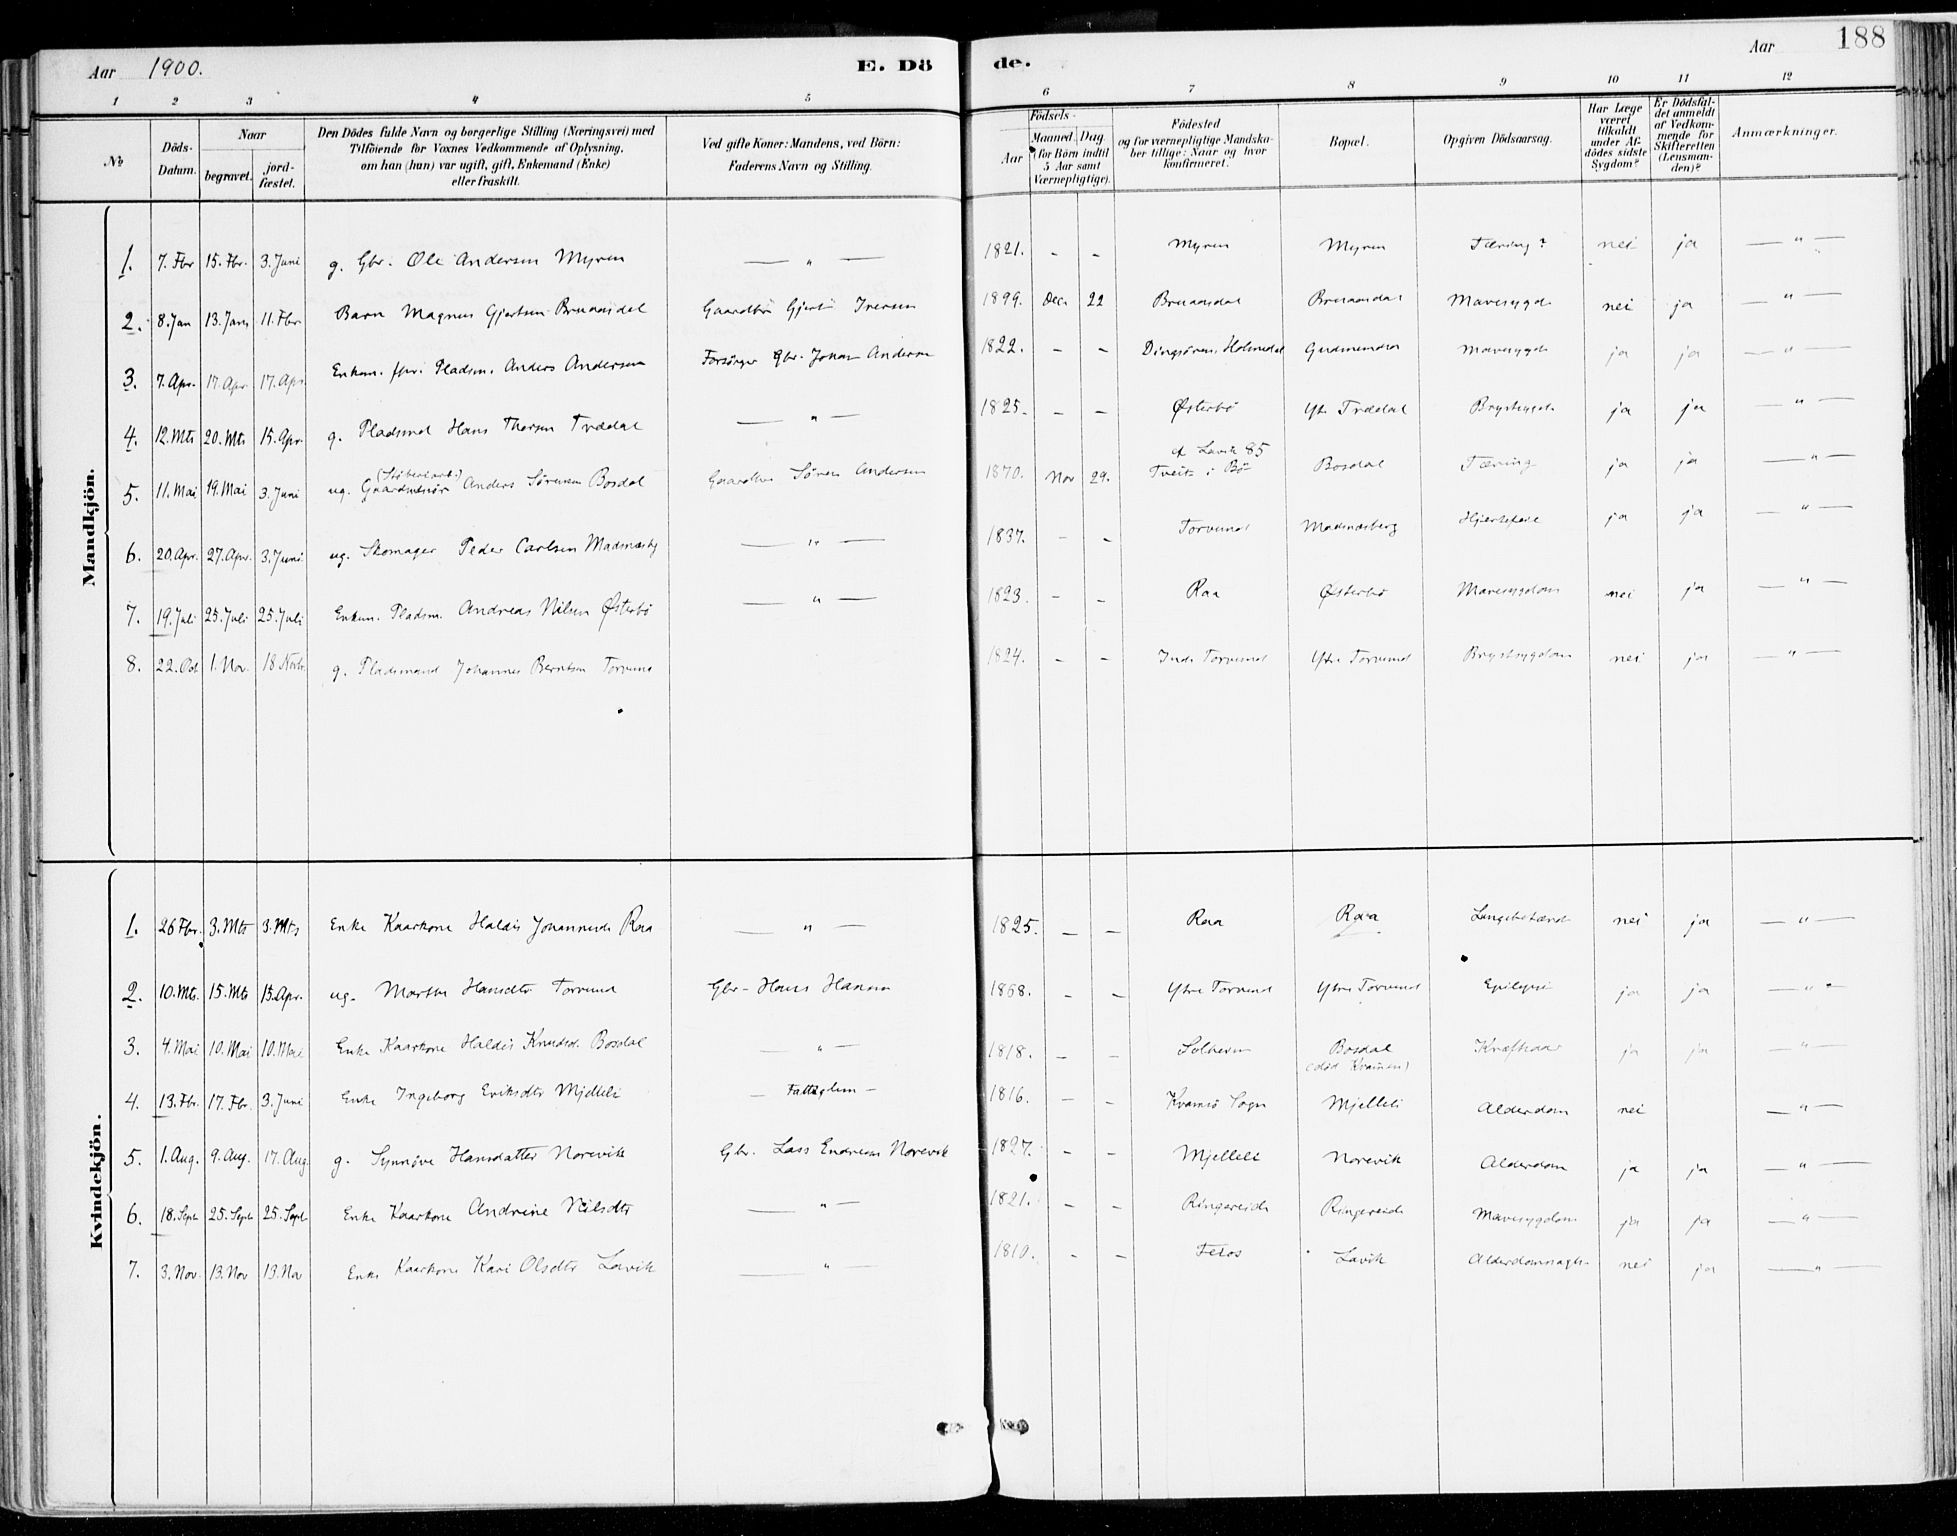 Aar 1900. E. Dö de. Aar 188
1 2 3 4 5 6 7 8 9 10 11 12
No
Döds-Datum.
Naar begravet. jordfæstet.
Den Dödes fulde Navn og borgerlige Stilling (Næringsvei) med
Tilföiende for Voxnes Vedkommende af Oplysning,
om han (hun) var ugift, gift, Enkemand (Enke)
eller fraskilt.
Ved gifte Koner: Mandens, ved Börn:
Faderens Navn og Stilling.
Födsels-
Aar Maaned. Dag
(for Börn indtil
5 Aar samt
Værnepligtige).
Födested
og for værnepligtige Mandska-
ber tillige: Naar og hvor
konfirmeret.
Bopæl.
Opgiven Dödsaarsag.
Har Læge
været
tilkaldt
under Af-
dødes sidste
Sygdom?
Er Dödsfal-
det anmeldt
af Vedkom-
mende for
Skifteretten
(Lensman-
den)?
Anmærkninger.
Mandkjön.
1. 7. Fbr 15. Fbr. 3. Juni g. Gbr. Ole Andersen Myren — " — 1821. - - Myren Myren Tæring? nei ja — " —
2. 8. Jan 13. Jan 11. Fbr Barn Magnus Gjertsen Bruaasdal Gaardbr. Gjert Iversen 1899. Dec. 22 Bruaasdal Bruaasdal Mavesygd. nei ja — " —
3. 7. Apr. 17. Apr 17. Apr Enkem. Pladsm. Anders Andersen Forsörger Gbr. Johan Andersen 1822. - - Dingsören, Holmedal Mavesygd. ja ja — " —
4. 12. Mts 20. Mts 15. Apr. g. Pladsmd Hans Thorsen Trædal — " — 1825. - - Østerbö Ytr. Trædal Brystsygd. ja ja — " —
5. 11. Mai 19. Mai 3. Juni ug. Anders Sörensen Bosdal Gaardbr. Sören Andersen 1870. Nov 29. Tveit i Bö Lavik 85 Bosdal Tæring ja ja — " —
6. 20. Apr. 27. Apr. 3. Juni. ug. Skomager Peder Carlsen — " — 1837. - - Torvund Hjertefeil ja ja — " —
7. 19. Juli 25. Juli 25. Juli Enkem. Pladsm. Andreas Nilsen Østerbö — " — 1823. - - Raa Østerbö Mavesygdom nei ja — " —
8. 22. Oct 1. Nov. 18 Novbr g. Pladsmand Johannes Berntsen Torvund 1824. - - Indr Torvund Ytre Torvund Brystsygdom nei ja — " —
Kvindekjön.
1. 26 Fbr. 3. Mts 3. Mts Enke Kaarkone Haldis Johannesd. Raa — " — 1825. - - Raa Raa Lungebetænd. nei ja — " —
2. 10. Mts. 15. Mts 15. Apr. ug. Marthe Hansdtr Torvund Gbr. Hans Hansen 1868. - - Ytre Torvund Ytre Torvund Epilepsi ja ja — " —
3. 4. Mai 10. Mai 10. Mai Enke Kaarkone Haldis Knudsd. Bosdal — " — 1818. - - Solheim Bosdal (död Kvamen) ja ja — " —
4. 13. Fbr. 17. Fbr. 3. Juni Enke Ingeborg Eriksdtr Mjelleli — Fattiglem — 1816. - - Kvamsö Sogn Mjelleli Alderdom nei — " —
5. 1. Aug. 9. Aug. 17. Aug g. Synnöve Hansdatter Norevik Gbr. Lass Endresen Norevik 1827. - - Mjelleli Norevik Alderdom ja ja — " —
6. 18. Septb 25. Septb 25. Septb Enke Kaarkone Andrine Nilsdtr — " — 1821. - - Ringereide Ringereide Mavesygdom ja ja — " —
7. 3. Nov. 13. Nov 13. Nov Enke Kaarkone Kari Olsdtr Lavik — " — 1810. - - Feios Lavik nei ja — " —